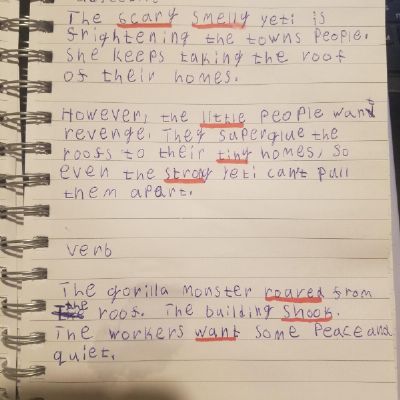 The scary smelly yeti is
frightening the towns people.
She keeps taking the roof
of their homes.
However, the little people want
revenge. They superglue the
roofs to their tiny homes, so
even the strong yeti can't pull
them apart.
verb
The gorilla monster roared from
the roof. The building shook.
The workers want some peace and
quiet.